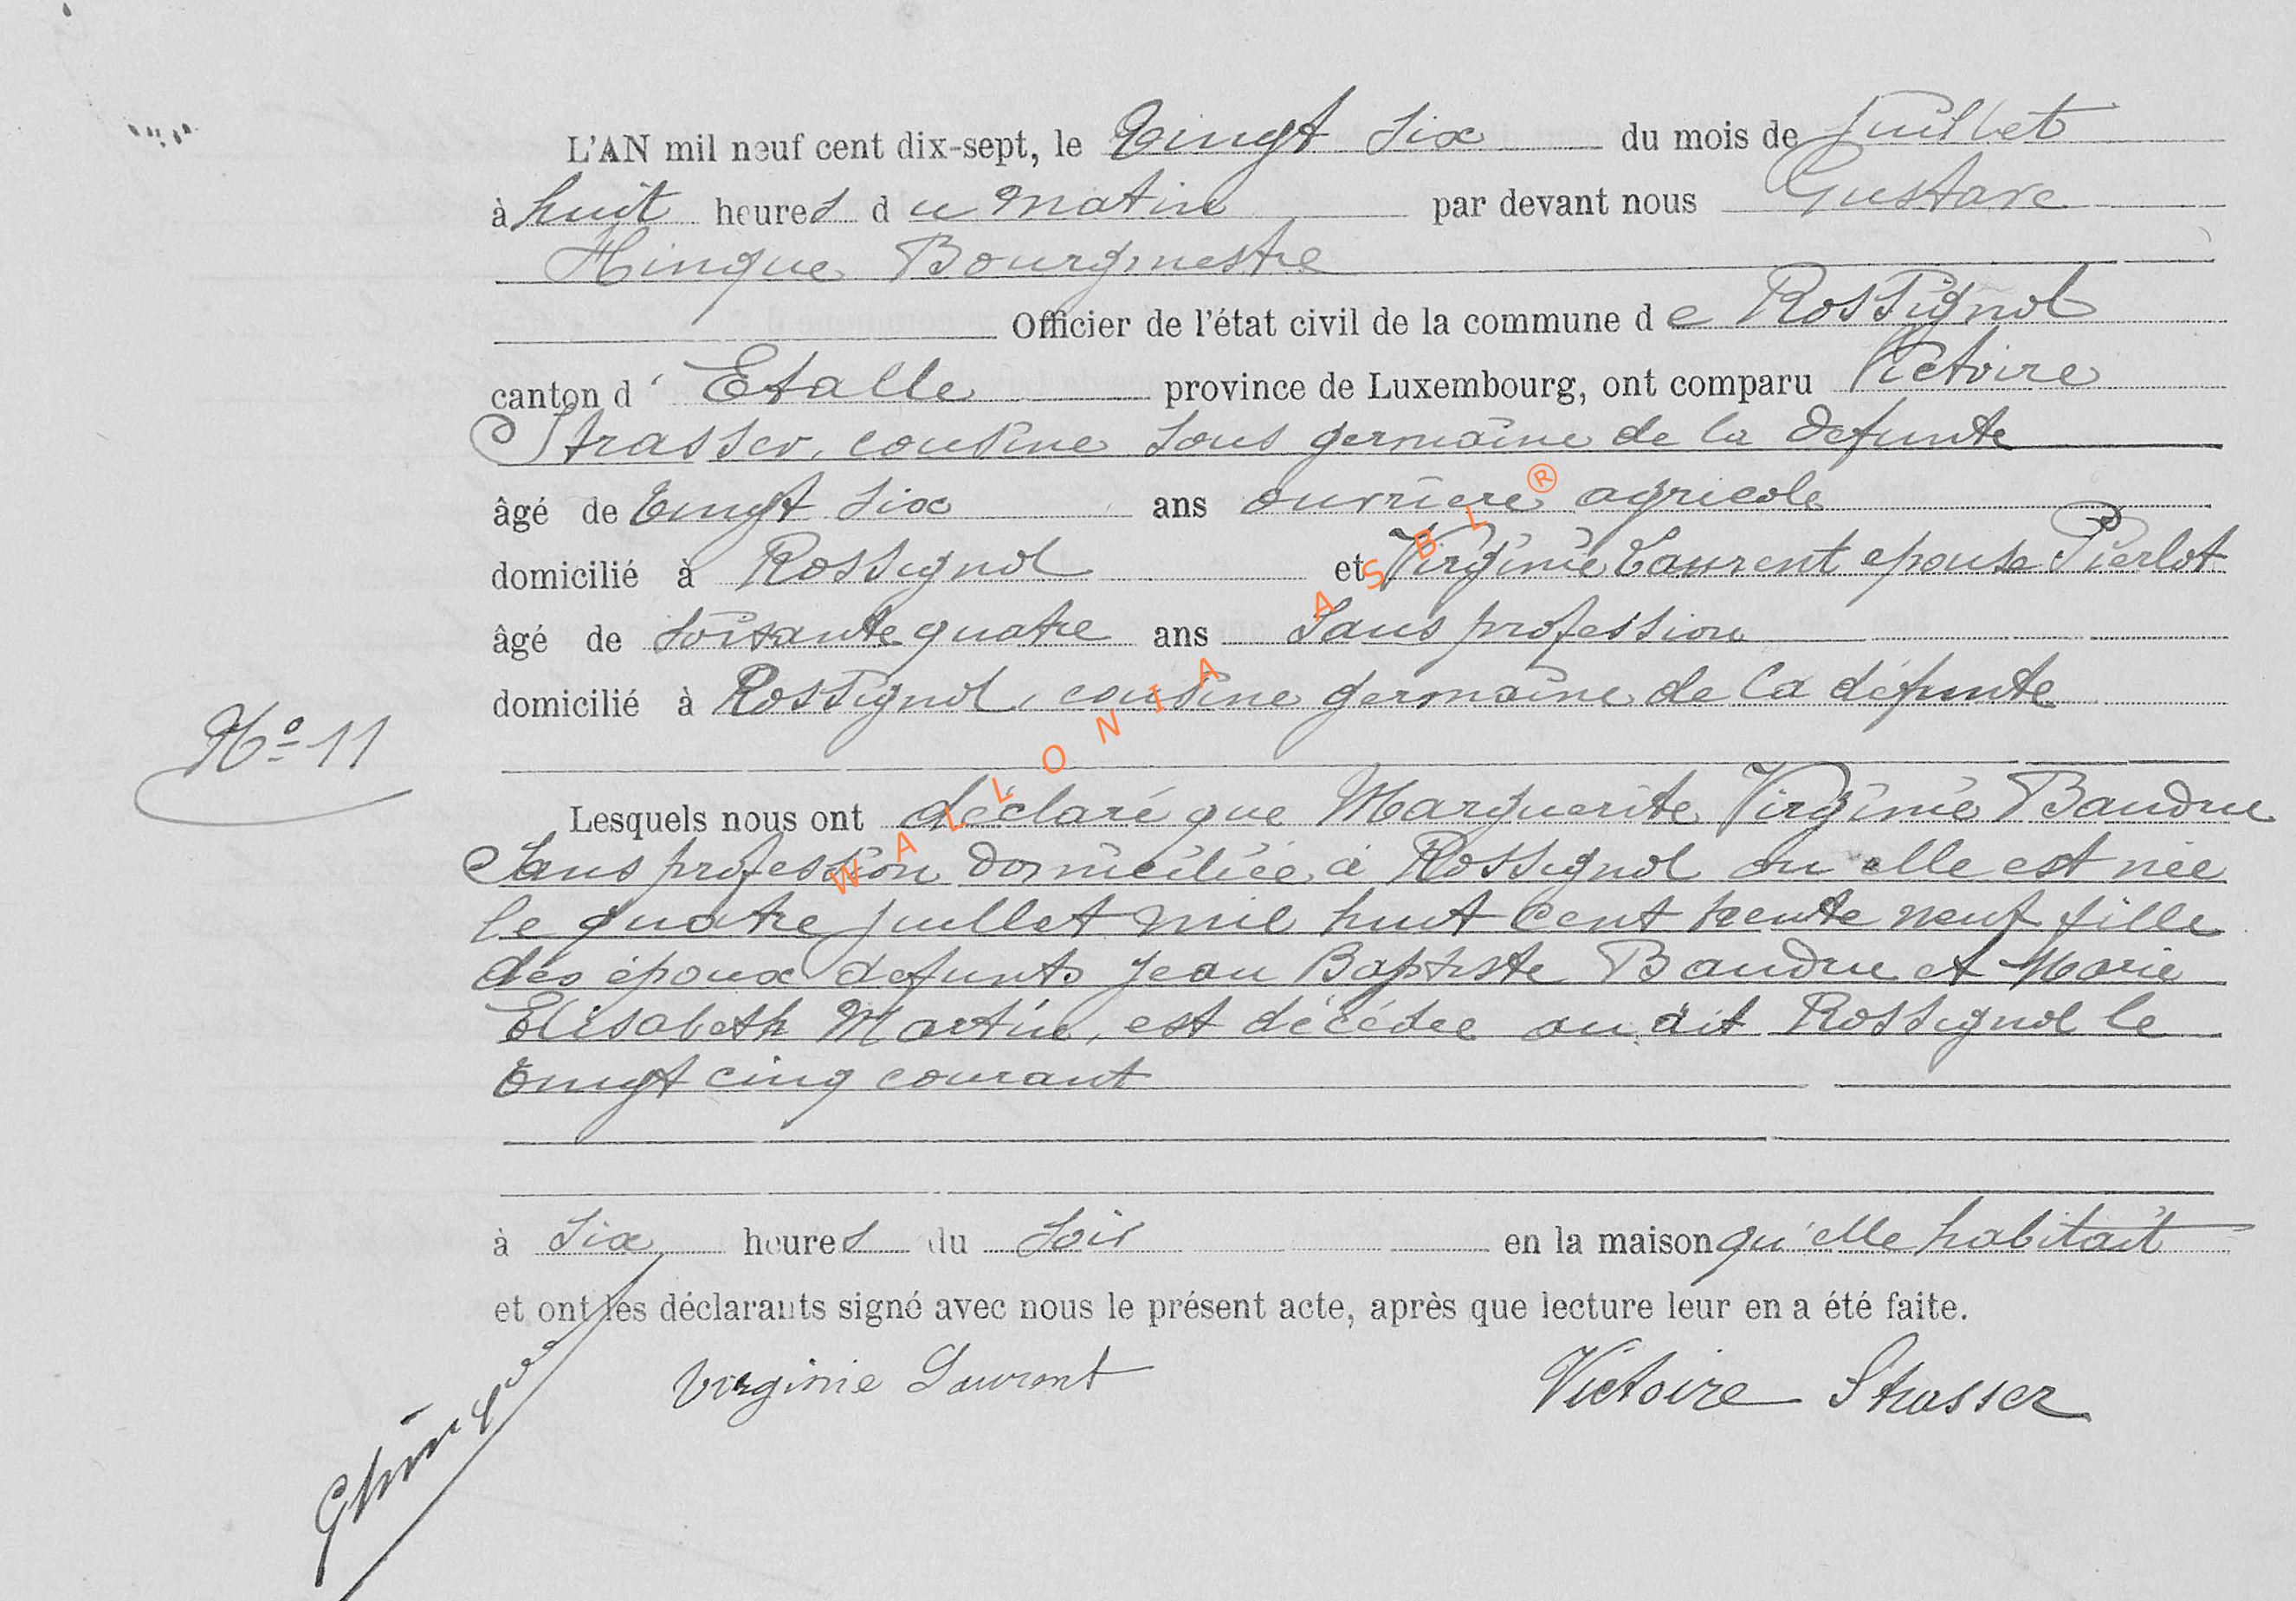 L'AN mil neuf cent dix-sept, le Vingt six du mois de Juillet
à huit heures du matin par devant nous Gustave
Hinque Bourgmestre
Officier de l'état civil de la commune de Rossignol
canton d'Etalle province de Luxembourg, ont comparu Victoire
Strasser, cousine sous germaine de la defunte
âgé de vingt six ans ouvriere agricole
domicilié à Rossignol et Virginie Laurent epouse Pierlot
âgé de soixante quatre ans sans profession
domicilié à Rossignol, cousine germaine de la défunte
No 11
Lesquels nous ont déclaré que Marguerite Virginie Baudru
sans profession domiciliée à Rossignol ou elle est née
le quatre juillet mil huit cent trente neuf fille
des époux defunts Jean Baptiste Baudru et Marie
Elisabeth Martin, est décédée au dit Rossignol le
vingt cinq courant
à six heures du soir en la maison qu'elle habitait
et ont les déclarants signé avec nous le présent acte, après que lecture leur en a été faite.
Virginie Laurent Victoire Strasser
WALLONIA ASBL ®